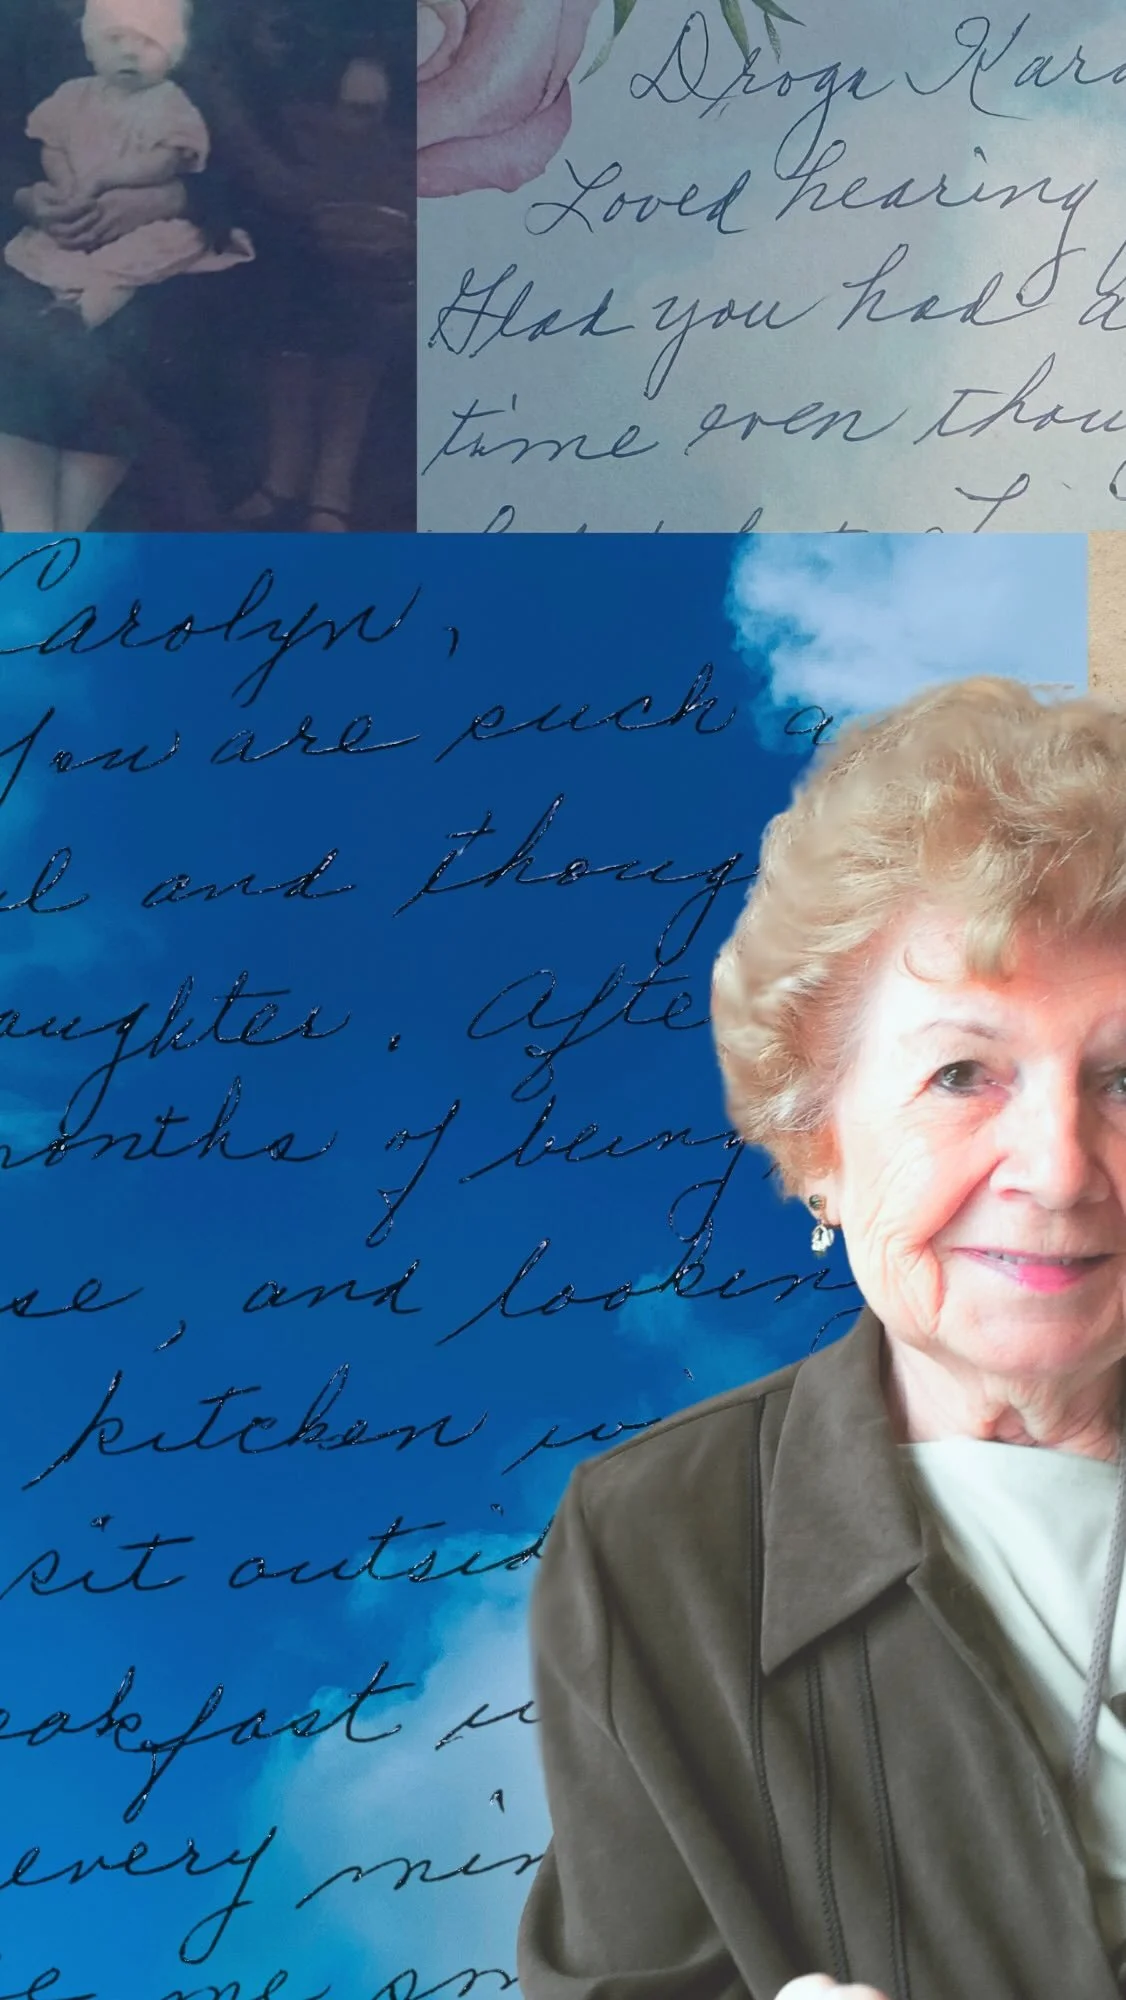 Droga Karo
Loved hearing
Glad you had a
time even thou
Carolyn,
You are such a
l and thoug
aughter. Afte
months of being
se, and looking
kitchen w
sit outsid
eakfast w
every min
me on